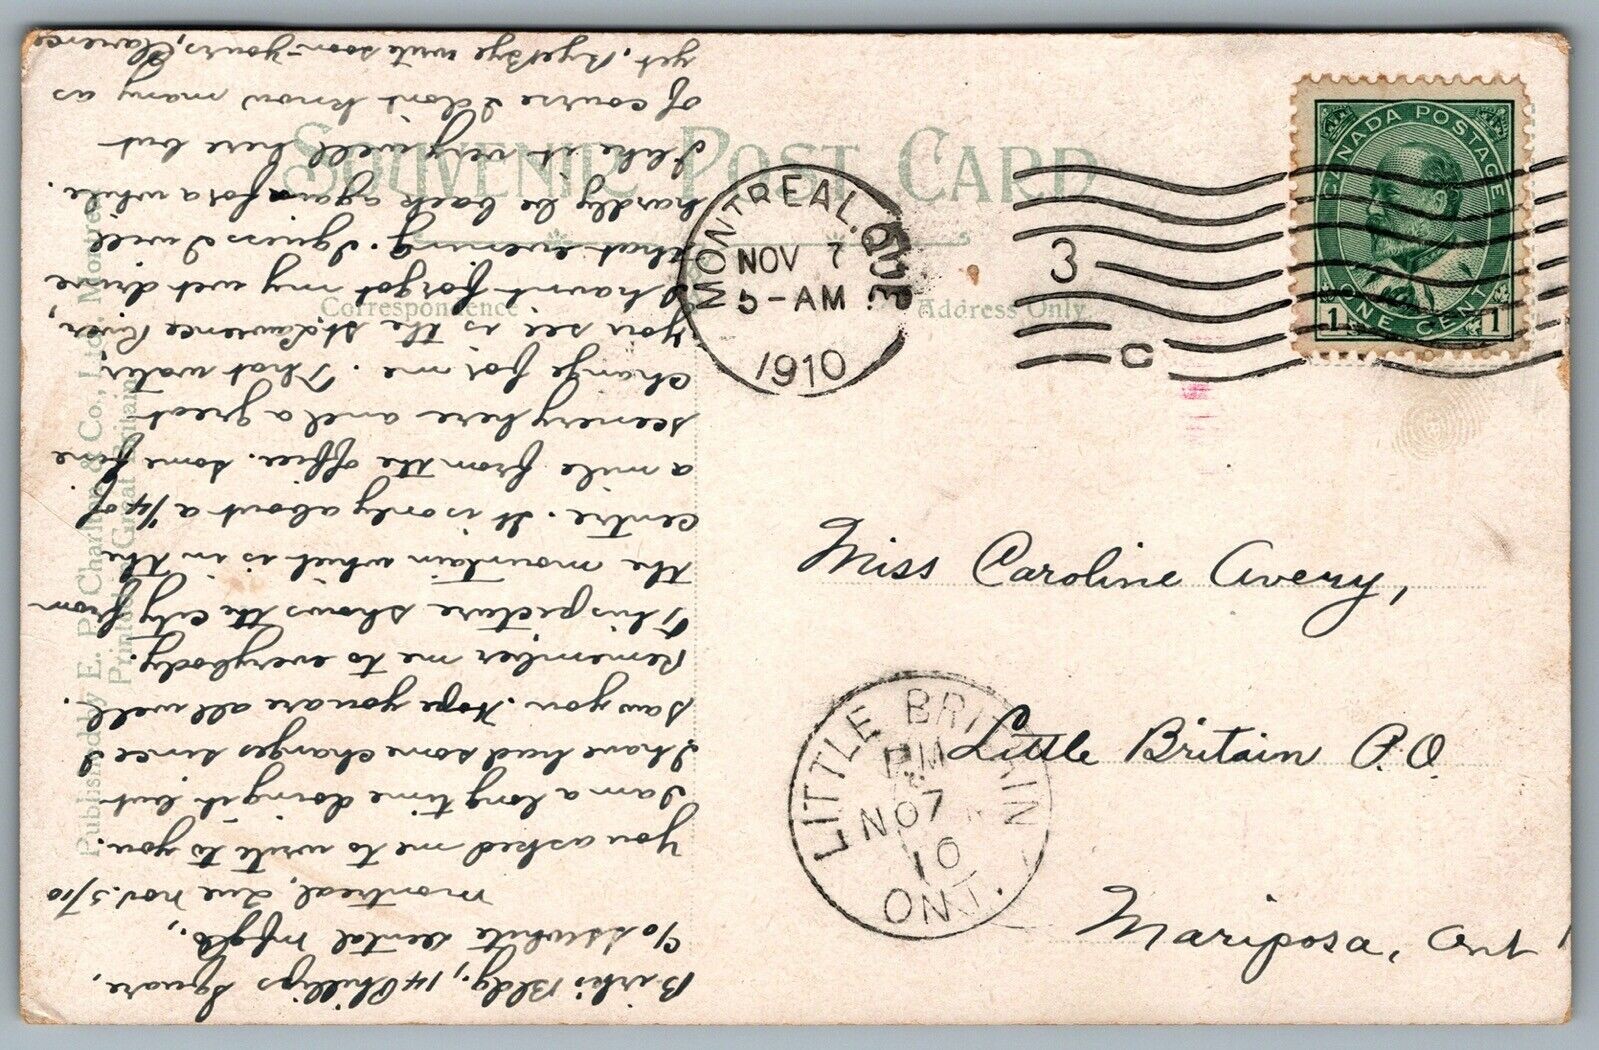 SOUVENIR POST CARD
Correspondence
Address Only
Published by E. P. Charlton & Co., Ltd. Montreal
Printed in Great Britain
MONTREAL. QUE.
NOV 7
5-AM
1910
3
C
CANADA POSTAGE
1 ONE CENT 1
Miss Caroline Avery,
Little Britain P.O.
Mariposa, Ont
LITTLE BRITAIN
PM
NO 7
10
ONT.
Birks Bldg., 14 Phillips Square,
c/o SSWhite Dental Mfg Co.,
Montreal, Que Nov. 5/10
You asked me to write to you.
I am a long time doing it but
I have had some changes since I
saw you. Hope you are all well.
Remember me to everybody.
This picture shows the city from
the mountain which is in the
centre. It is only about a 1/4 of
a mile from the office. Some fine
scenery here and a great
change for me. That water
you see is the St. Lawrence River,
I havnt forgot my wet drive
that evening. I guess I will
hardly be back again for a while.
I like it very well here but
of course I dont know many as
yet. Bye Bye write soon - yours, Clarence